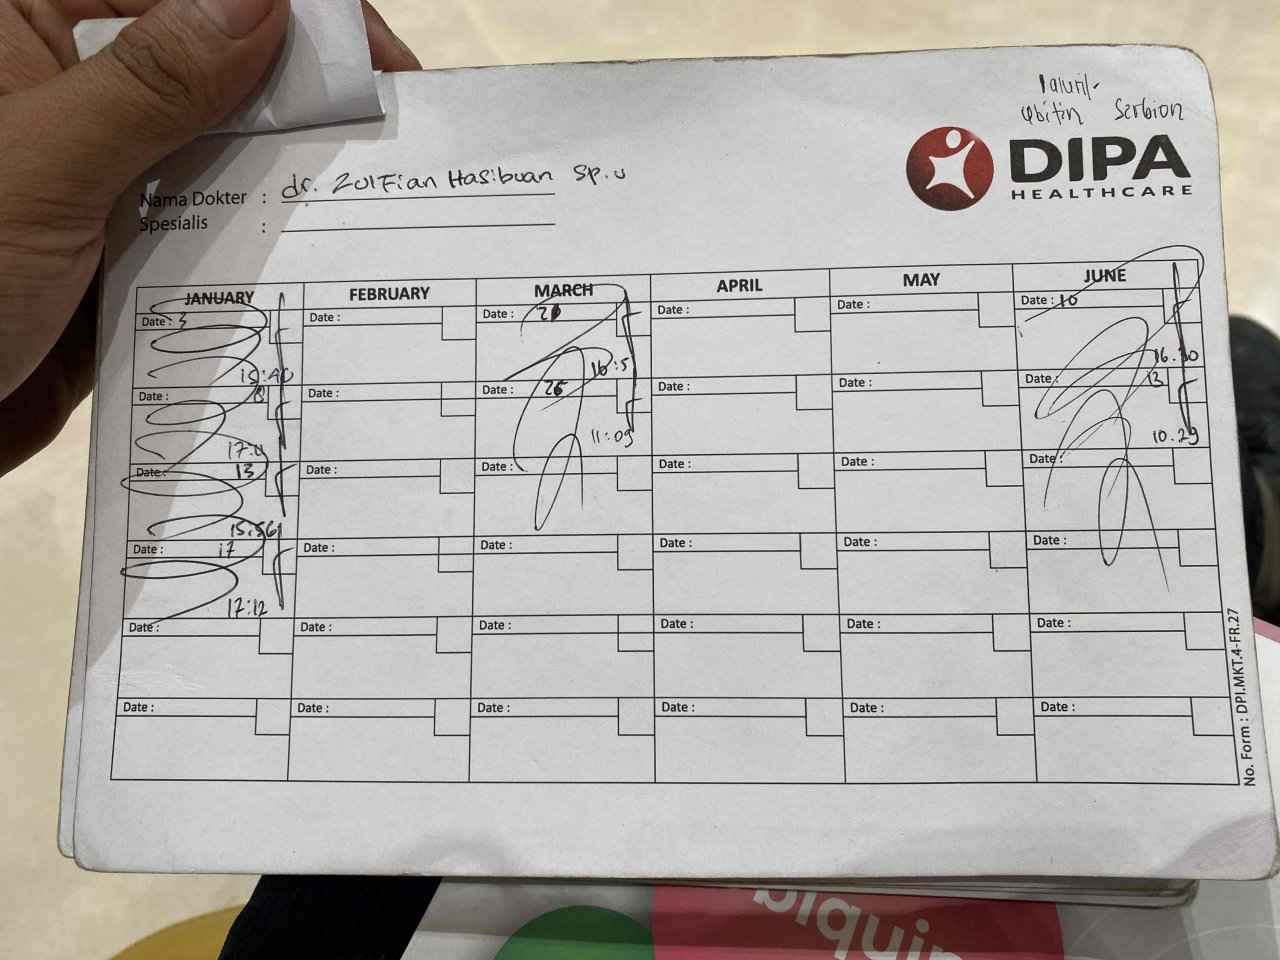 Serbion
DIPA
HEALTHCARE
Nama Dokter : dr. Zulfian Hasibuan Sp.u
Spesialis :
JANUARY FEBRUARY MARCH APRIL MAY JUNE
Date : 3 Date : Date : Date : Date : Date : 10
15:40 16.30
Date : 8 Date : Date : 26 Date : Date : Date : 13
11:09 10.29
Date : 13 Date : Date : Date : Date : Date :
15.56
Date : 17 Date : Date : Date : Date : Date :
17:12
Date : Date : Date : Date : Date : Date :
Date : Date : Date : Date : Date : Date :
No. Form : DPI.MKT.4-FR.27